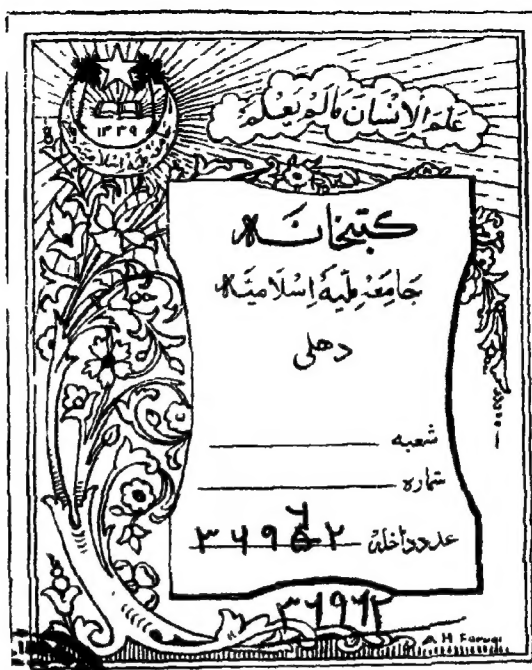 عَلَّمَ الْاِنْسَانَ مَالَمْ يَعْلَمْ
۱۳۳۹
كتبخانہ
جامعہ ملیہ اسلامیہ
دهلی
شعبہ
شمارہ
۶
عدد داخلہ ۳۶۹۵۲
۳۶۹۶۲
A H Faruqi